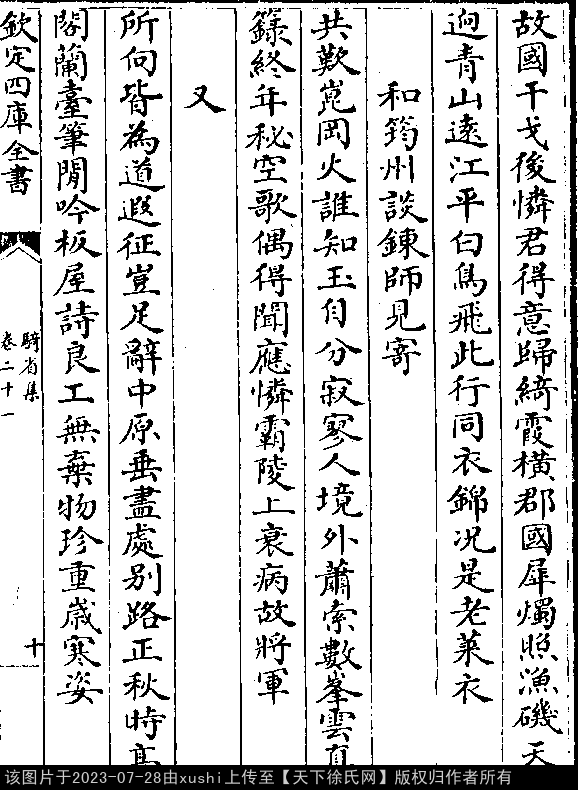 故國干戈後憐君得意歸綺霞橫郡國犀燭照漁磯天
迥青山遠江平白鳥飛此行同衣錦况是老萊衣
和筠州談鍊師見寄
共歎崑岡火誰知玉自分寂寥人境外蕭索數峯雲真
籙終年秘空歌偶得聞應憐霸陵上衰病故將軍
又
所向皆為道遐征豈足辭中原垂盡處别路正秋時髙
閣蘭臺筆閒吟板屋詩良工無棄物珍重嵗寒姿
欽定四庫全書
騎省集
卷二十一
十
该图片于2023-07-28由xushi上传至【天下徐氏网】版权归作者所有